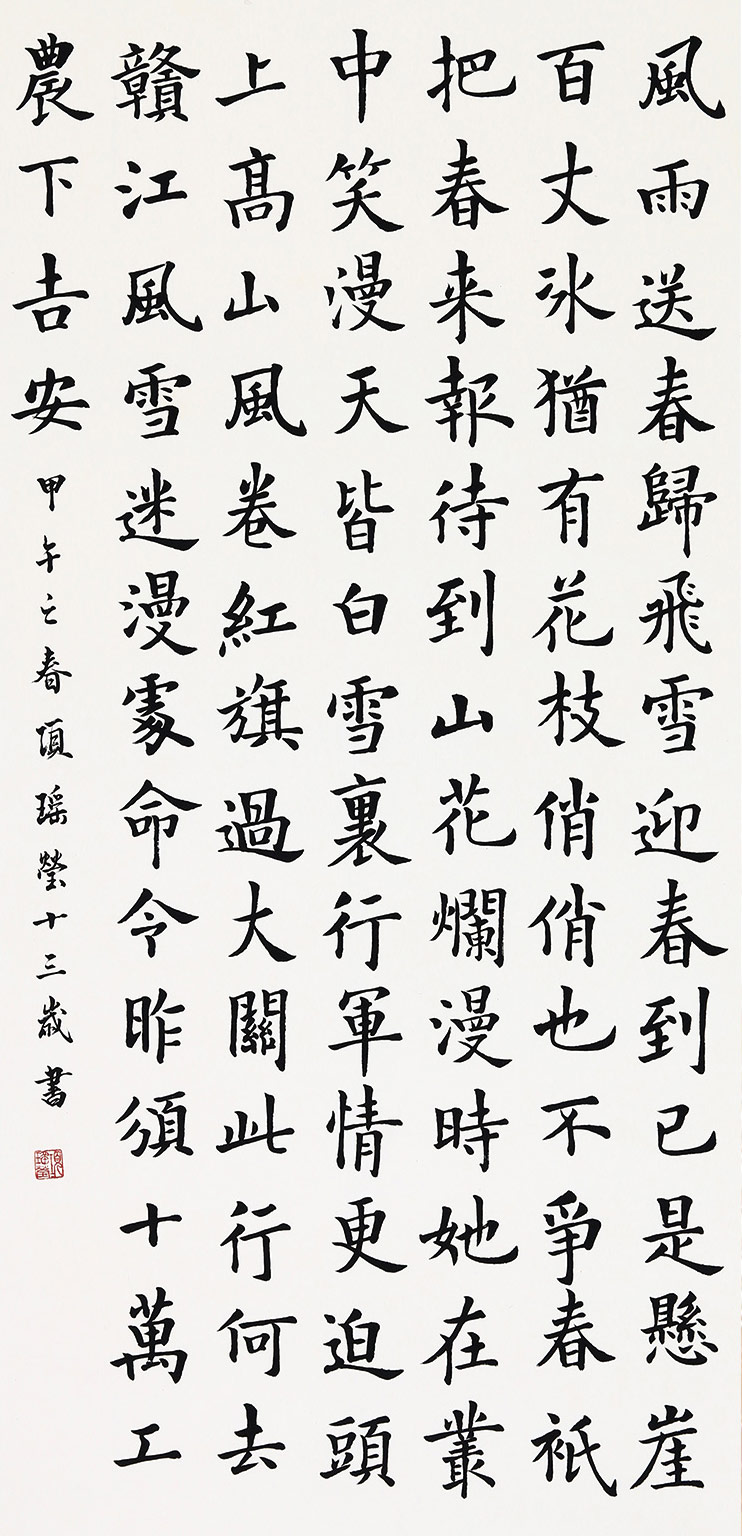 風雨送春歸飛雪迎春到已是懸崖
百丈冰猶有花枝俏俏也不爭春祇
把春来報待到山花爛漫時她在叢
中笑漫天皆白雪裏行軍情更迫頭
上高山風卷紅旗過大關此行何去
贛江風雪迷漫處命令昨頒十萬工
農下吉安
甲午之春項瑶瑩十三歲書